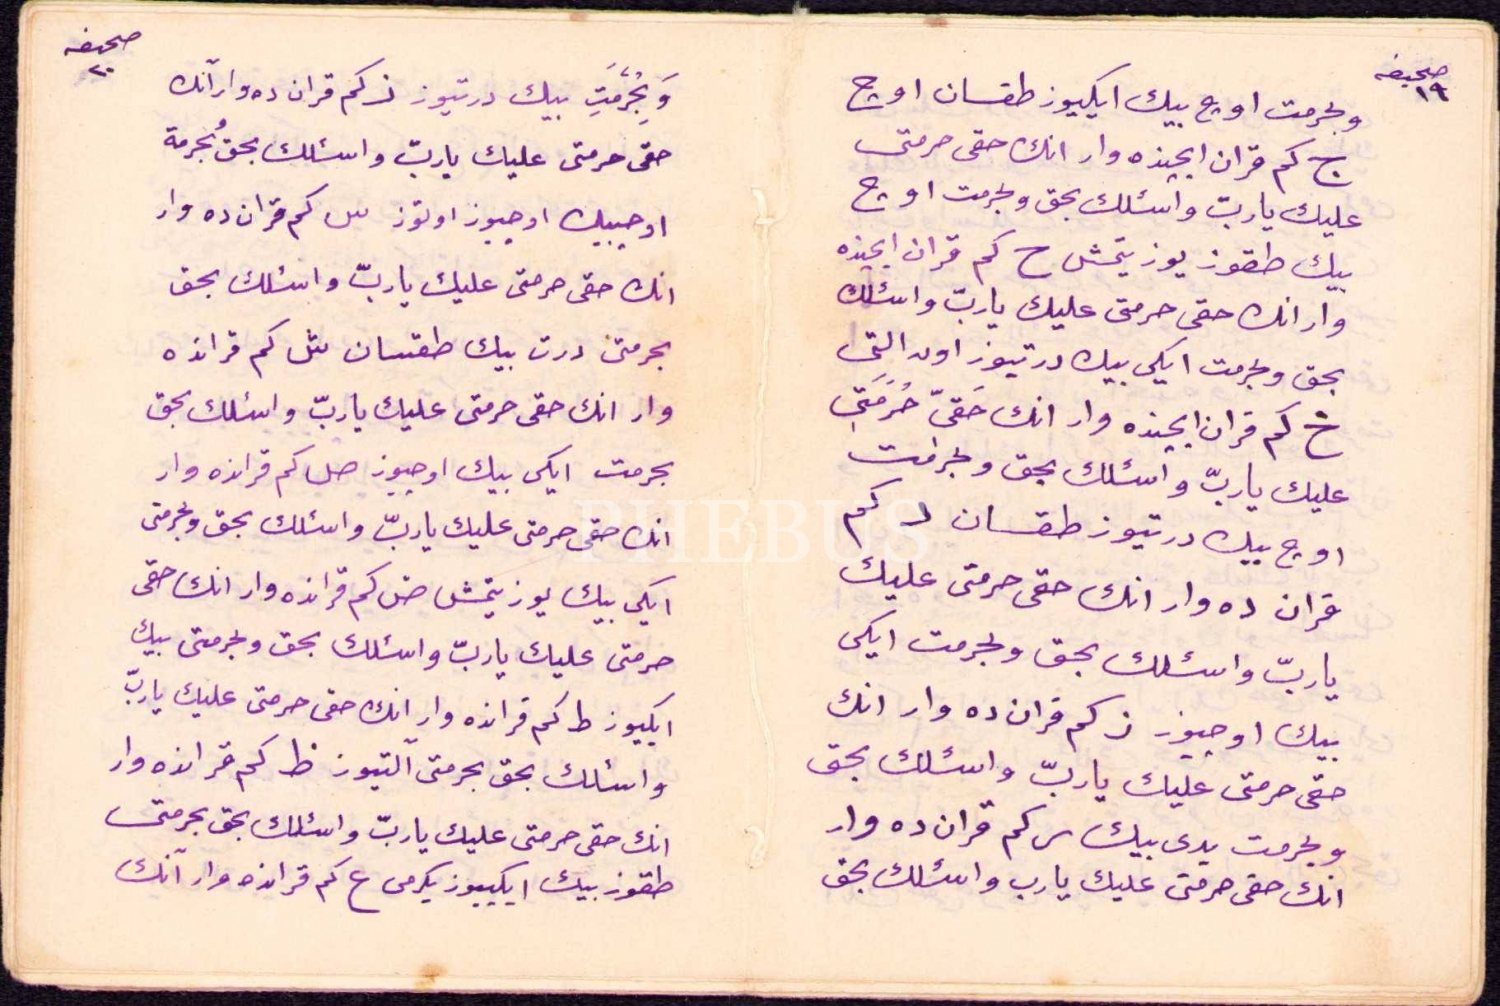 صحيفه
١٩
وبحرمت اوچ بيك ايكيوز طقسان اوچ
ج كم قران ايچنده وار انك حقى حرمتى
عليك يا ربّ واسئلك بحق وبحرمت اوچ
بيك طقوز يوز يتمش ح كم قران ايچنده
وار انك حقى حرمتى عليك يا ربّ واسئلك
بحق وبحرمت ايكى بيك درتيوز اون التى
خ كم قران ايچنده وار انك حَقىّ حُرمَتىِ
عليك يا ربّ واسئلك بحق وبحرمت
اوچ بيك درتيوز طقسان د كم
قران ده وار انك حقى حرمتى عليك
يا ربّ واسئلك بحق وبحرمت ايكى
بيك اوچيوز ز كم قران ده وار انك
حقى حرمتى عليك يا ربّ واسئلك بحق
وبحرمت يدى بيك ر كم قران ده وار
انك حقى حرمتى عليك يا رب واسئلك بحق
صحيفه
٢٠
وَبِحُرْمَتِ بيك درتيوز ز كم قران ده وار آنك
حقى حرمتى عليك يا ربّ واسئلك بحق بُحرمة
اوچبيك اوچيوز اوتوز س كم قران ده وار
انك حقى حرمتى عليك يا ربّ واسئلك بحق
بحرمتى درت بيك طقسان ش كم قرانده
وار انك حقى حرمتى عليك يا ربّ واسئلك بحق
بحرمت ايكى بيك اوچيوز ص كم قرانده وار
انك حقى حرمتى عليك يا ربّ واسئلك بحق وبحرمتى
ايكى بيك يوز يتمش ض كم قرانده وار انك حقى
حرمتى عليك يا ربّ واسئلك بحق وبحرمتى بيك
ايكيوز ط كم قرانده وار انك حقى حرمتى عليك يا ربّ
واسئلك بحق بحرمتى آلتيوز ظ كم قرانده وار
انك حقى حرمتى عليك يا ربّ واسئلك بحق بحرمتى
طقوز بيك ايكييوز يكرمى ع كم قرانده وار آنك
PHEBUS